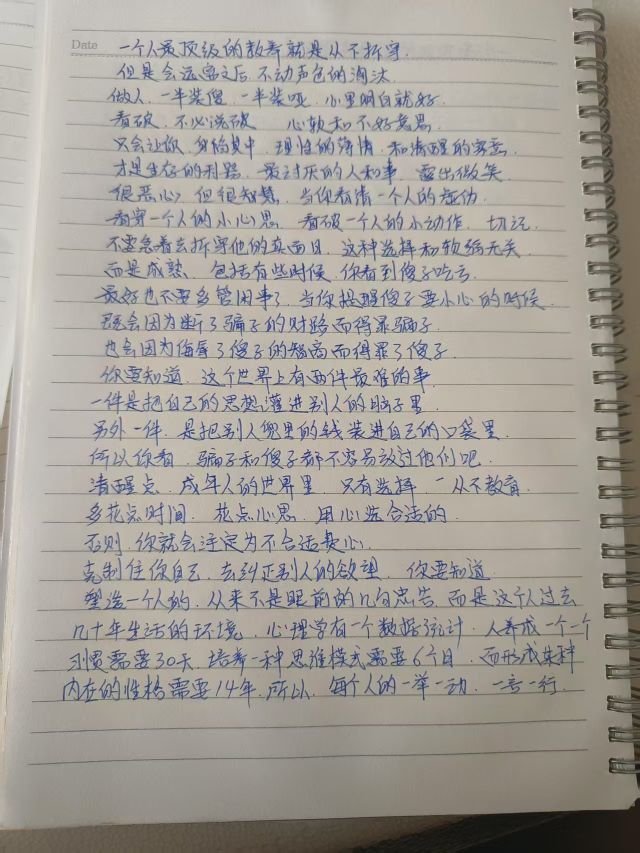 Date
一个人最顶级的教养就是从不拆穿.
但是会远离之后.不动声色的淘汰.
做人.一半装傻.一半装哑.心里明白就好.
看破.不必说破 心软和不好意思.
只会让你.身陷其中.理性的薄情.和清醒的
才是生存的利路.最讨厌的人和事.露出微笑
很恶心.但很智慧.当你看清一个人的虚伪
看穿一个人的小心思 看破一个人的小动作.切记.
不要急着去拆穿他的真面目.这种选择和软弱无关
而是成熟.包括有些时候.你看到傻子吃亏
最好也不要多管闲事了.当你提醒傻子要小心的时候.
既会因为断了骗子的财路而得罪骗子.
也会因为侮辱了傻子的智商而得罪了傻子.
你要知道.这个世界上有两件最难的事.
一件是把自己的思想灌进别人的脑子里.
另外一件.是把别人兜里的钱装进自己的口袋里.
所以你看.骗子和傻子都不容易放过他们吧.
清醒点.成年人的世界里.只有选择.从不教育.
多花点时间.花点心思.用心选合适的.
否则.你就会注定为不合适费心.
克制住你自己.去纠正别人的欲望.你要知道
塑造一个人的.从来不是眼前的几句忠告.而是这个人过去
几十年生活的环境.心理学有一个数据统计.人养成一个一个
习惯需要30天.培养一种思维模式需要6个月.而形成某种
内在的性格需要14年.所以.每个人的一举一动.一言一行.